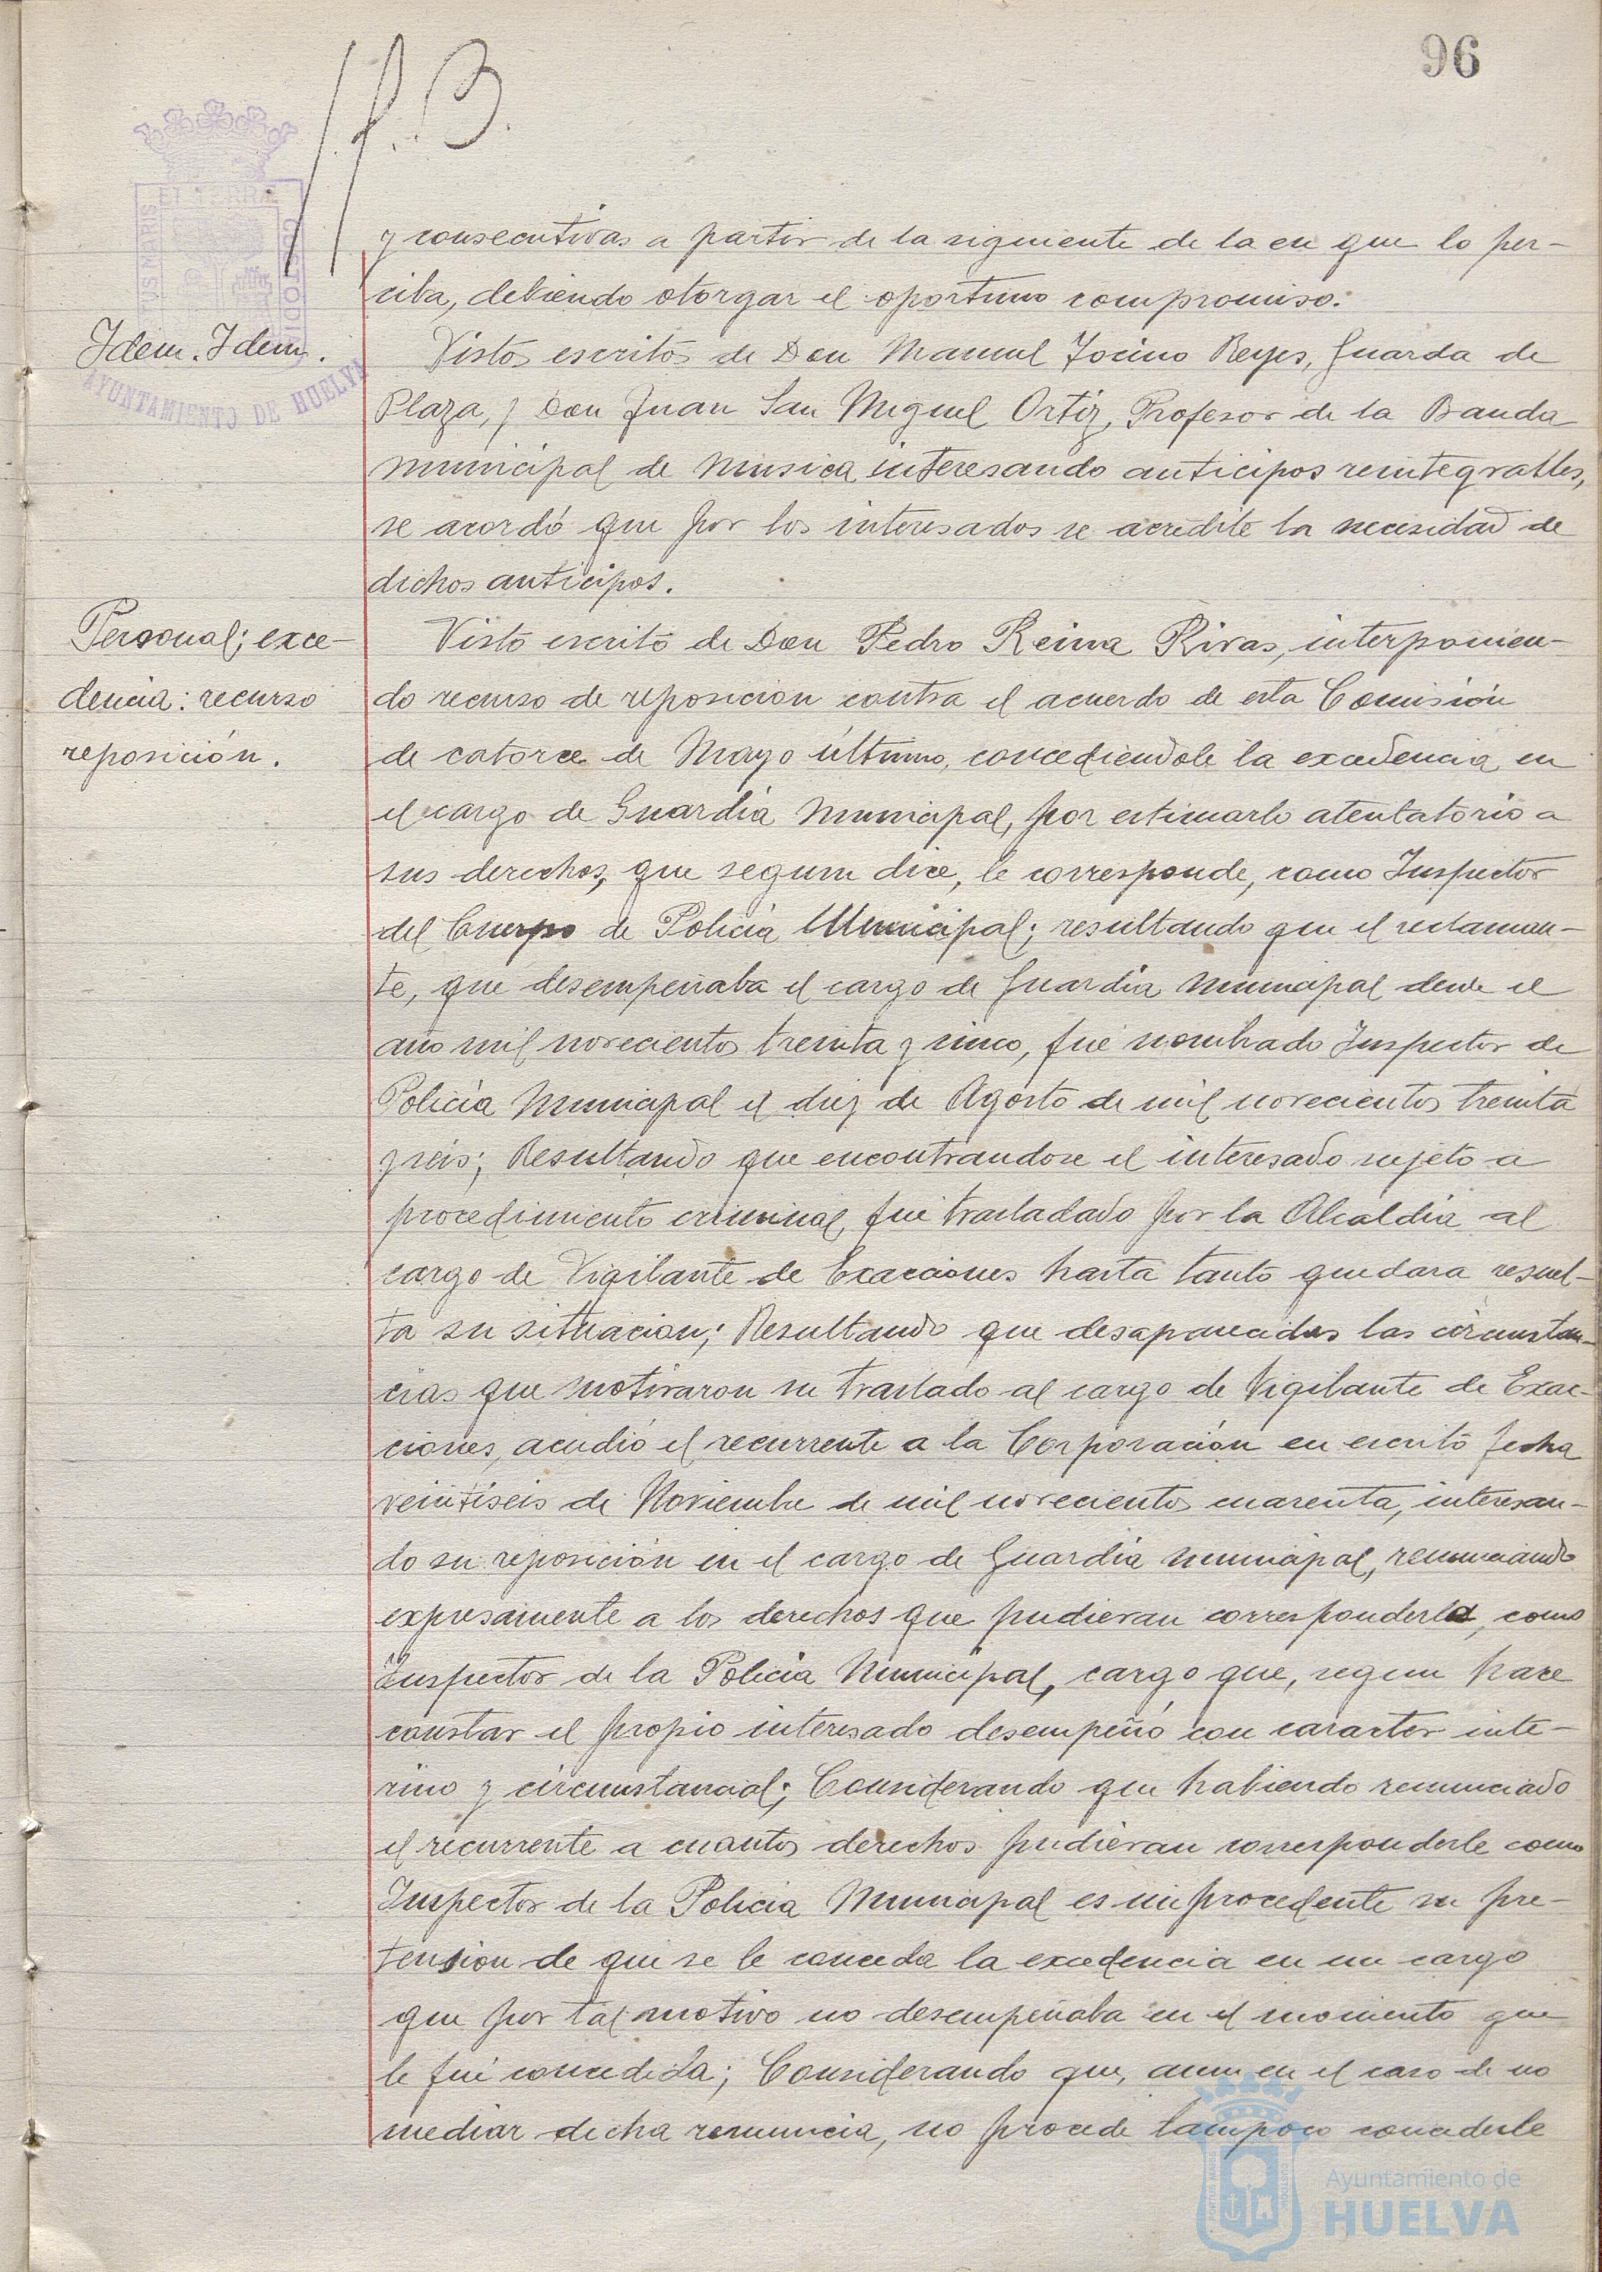 96
y consecutivas a partir de la siguiente de la en que lo per-
ciba, debiendo otorgar el oportuno compromiso.
Idem. Idem.
Vistos escritos de Don Manuel Tocino Reyes, Guarda de
Plaza, y Don Juan San Miguel Ortiz, Profesor de la Banda
municipal de música interesando anticipos reintegrables,
se acordó que por los interesados se acredite la necesidad de
dichos anticipos.
Personal; exce-
dencia: recurso
reposición.
Visto escrito de Don Pedro Reina Rivas, interponien-
do recurso de reposicion contra el acuerdo de esta Comisión
de catorce de Mayo último, concediendole la excedencia en
el cargo de Guardia Municipal, por estimarlo atentatorio a
sus derechos, que segun dice, le corresponde, como Inspector
del Cuerpo de Policia Municipal; resultando que el reclaman-
te, que desempeñaba el cargo de Guardia municipal desde el
año mil novecientos treinta y cinco, fué nombrado Inspector de
Policia Municipal el diez de Agosto de mil novecientos treinta
y seis; Resultando que encontrandose el interesado sujeto a
procedimiento criminal, fué trasladado por la Alcaldia al
cargo de Vigilante de Exacciones hasta tanto quedara resuel-
ta su situacion; Resultando que desaparecidas las circunstan-
cias que motivaron su traslado al cargo de Vigilante de Exac-
ciones, acudió el recurrente a la Corporación en escrito fecha
veintiseis de Noviembre de mil novecientos cuarenta, interesan-
do su reposición en el cargo de Guardia municipal, renunciando
expresamente a los derechos que pudieran corresponderle, como
Inspector de la Policia Municipal, cargo que, segun hace
constar el propio interesado desempeñó con caracter inte-
rino y circunstancial; Considerando que habiendo renunciado
el recurrente a cuantos derechos pudieran corresponderle como
Inspector de la Policia Municipal es improcedente su pre-
tension de que se le conceda la excedencia en un cargo
que por tal motivo no desempeñaba en el momento que
le fué concedida; Considerando que, aun en el caso de no
mediar dicha renuncia, no procede tampoco concederle
AYUNTAMIENTO DE HUELVA
Ayuntamiento de
HUELVA